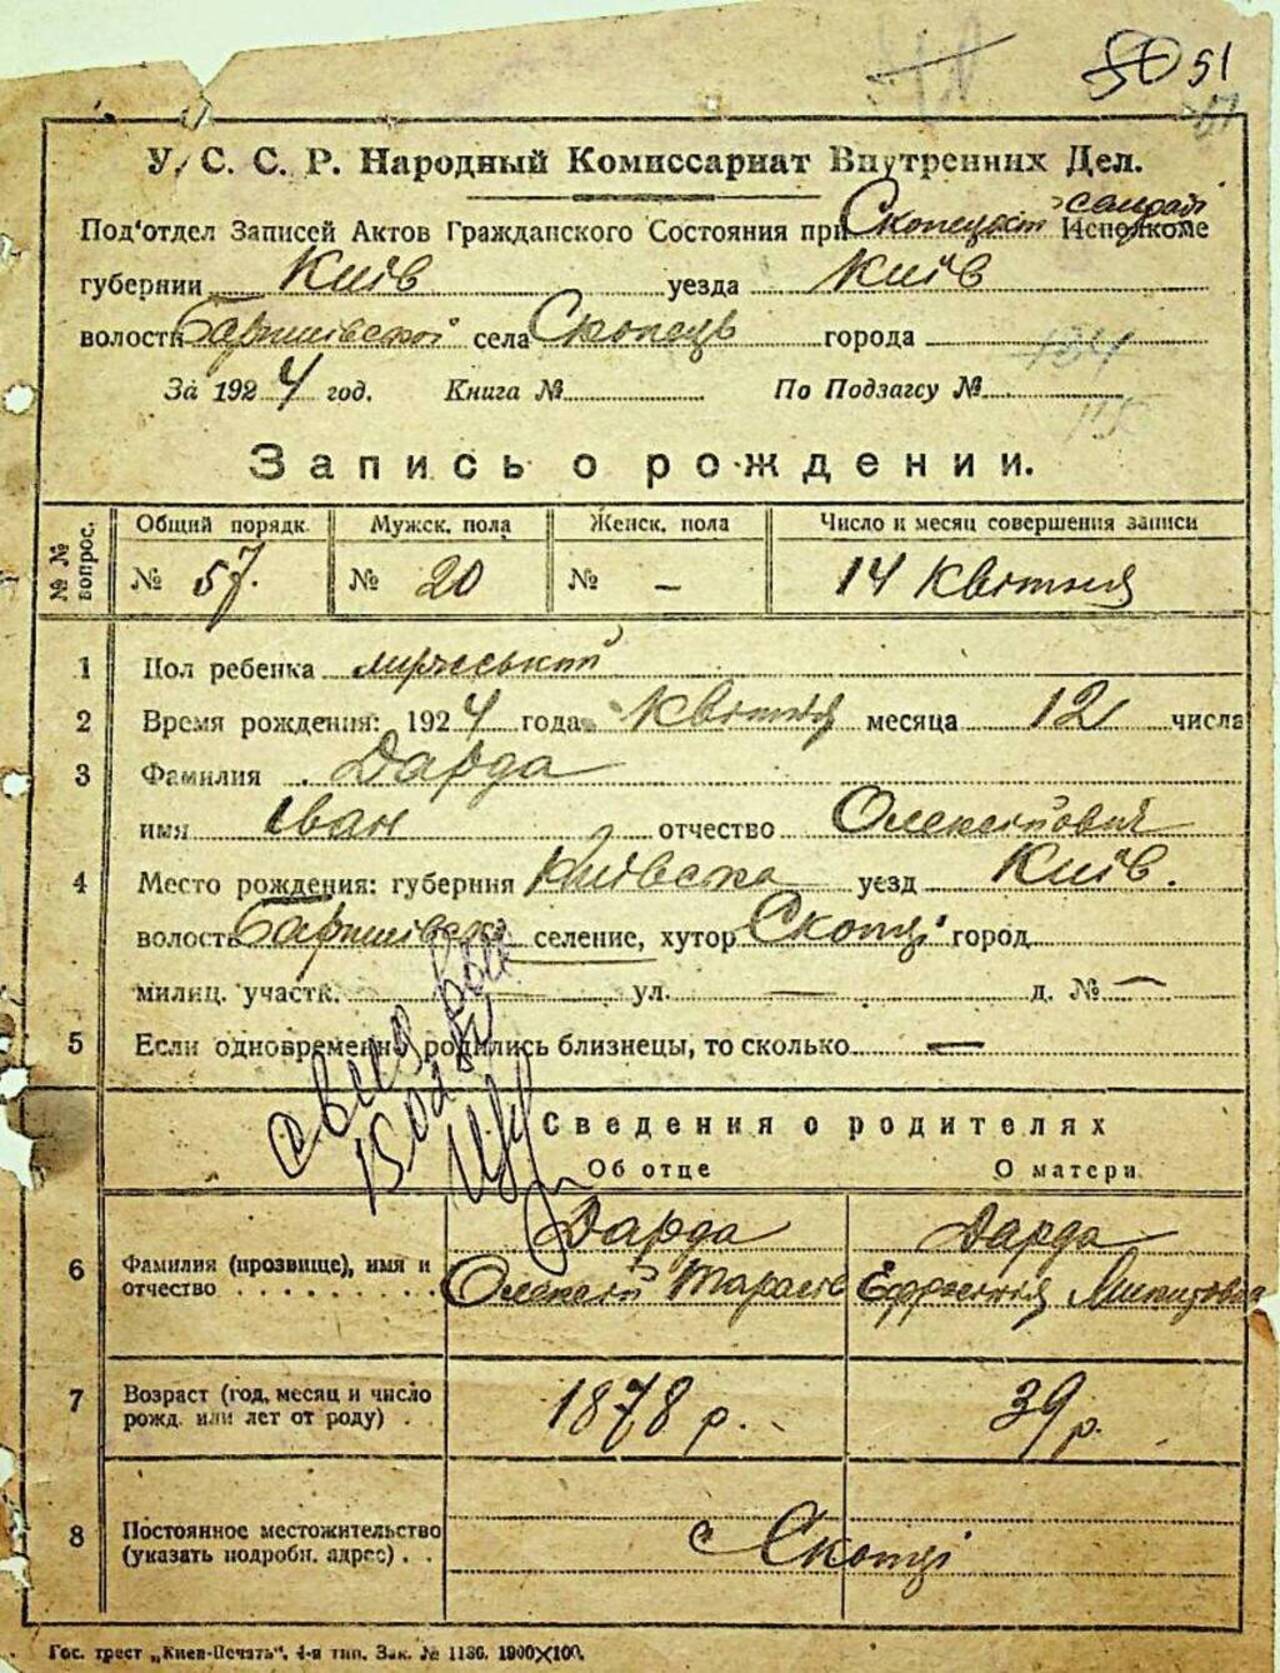 51
У. С. С. Р. Народный Комиссариат Внутренних Дел.
сельрай
Под'отдел Записей Актов Гражданского Состояния при Исполкоме
губернии Київ уезда Київ
волости Баришівської села Скопець города
За 1924 год. Книга № По Подзагсу №
Запись о рождении.
№ № вопрос. Общий порядк. Мужск. пола Женск. пола Число и месяц совершения записи
№ 57. № 20 № - 14 Квітня
1 Пол ребенка мужеський
2 Время рождения: 1924 года Квітня месяца 12 числа
3 Фамилия Дарда
имя Іван отчество Олексійович
4 Место рождения: губерния Київська уезд Київ.
волость Баришівська селение, хутор Скопці город
милиц. участк. — ул. — д. № —
5 Если одновременно родились близнецы, то сколько —
Сведения о родителях
Об отце О матери
6 Фамилия (прозвище), имя и отчество Дарда Олексій Тарасів Дарда Ефросинія Микитовна
7 Возраст (год, месяц и число рожд. или лет от роду) 1878 р. 39 р.
8 Постоянное местожительство (указать подробн. адрес) с Скопці
Гос. трест „Киев-Печать“. 4-я тип. Зак. № 1136. 1900×100.